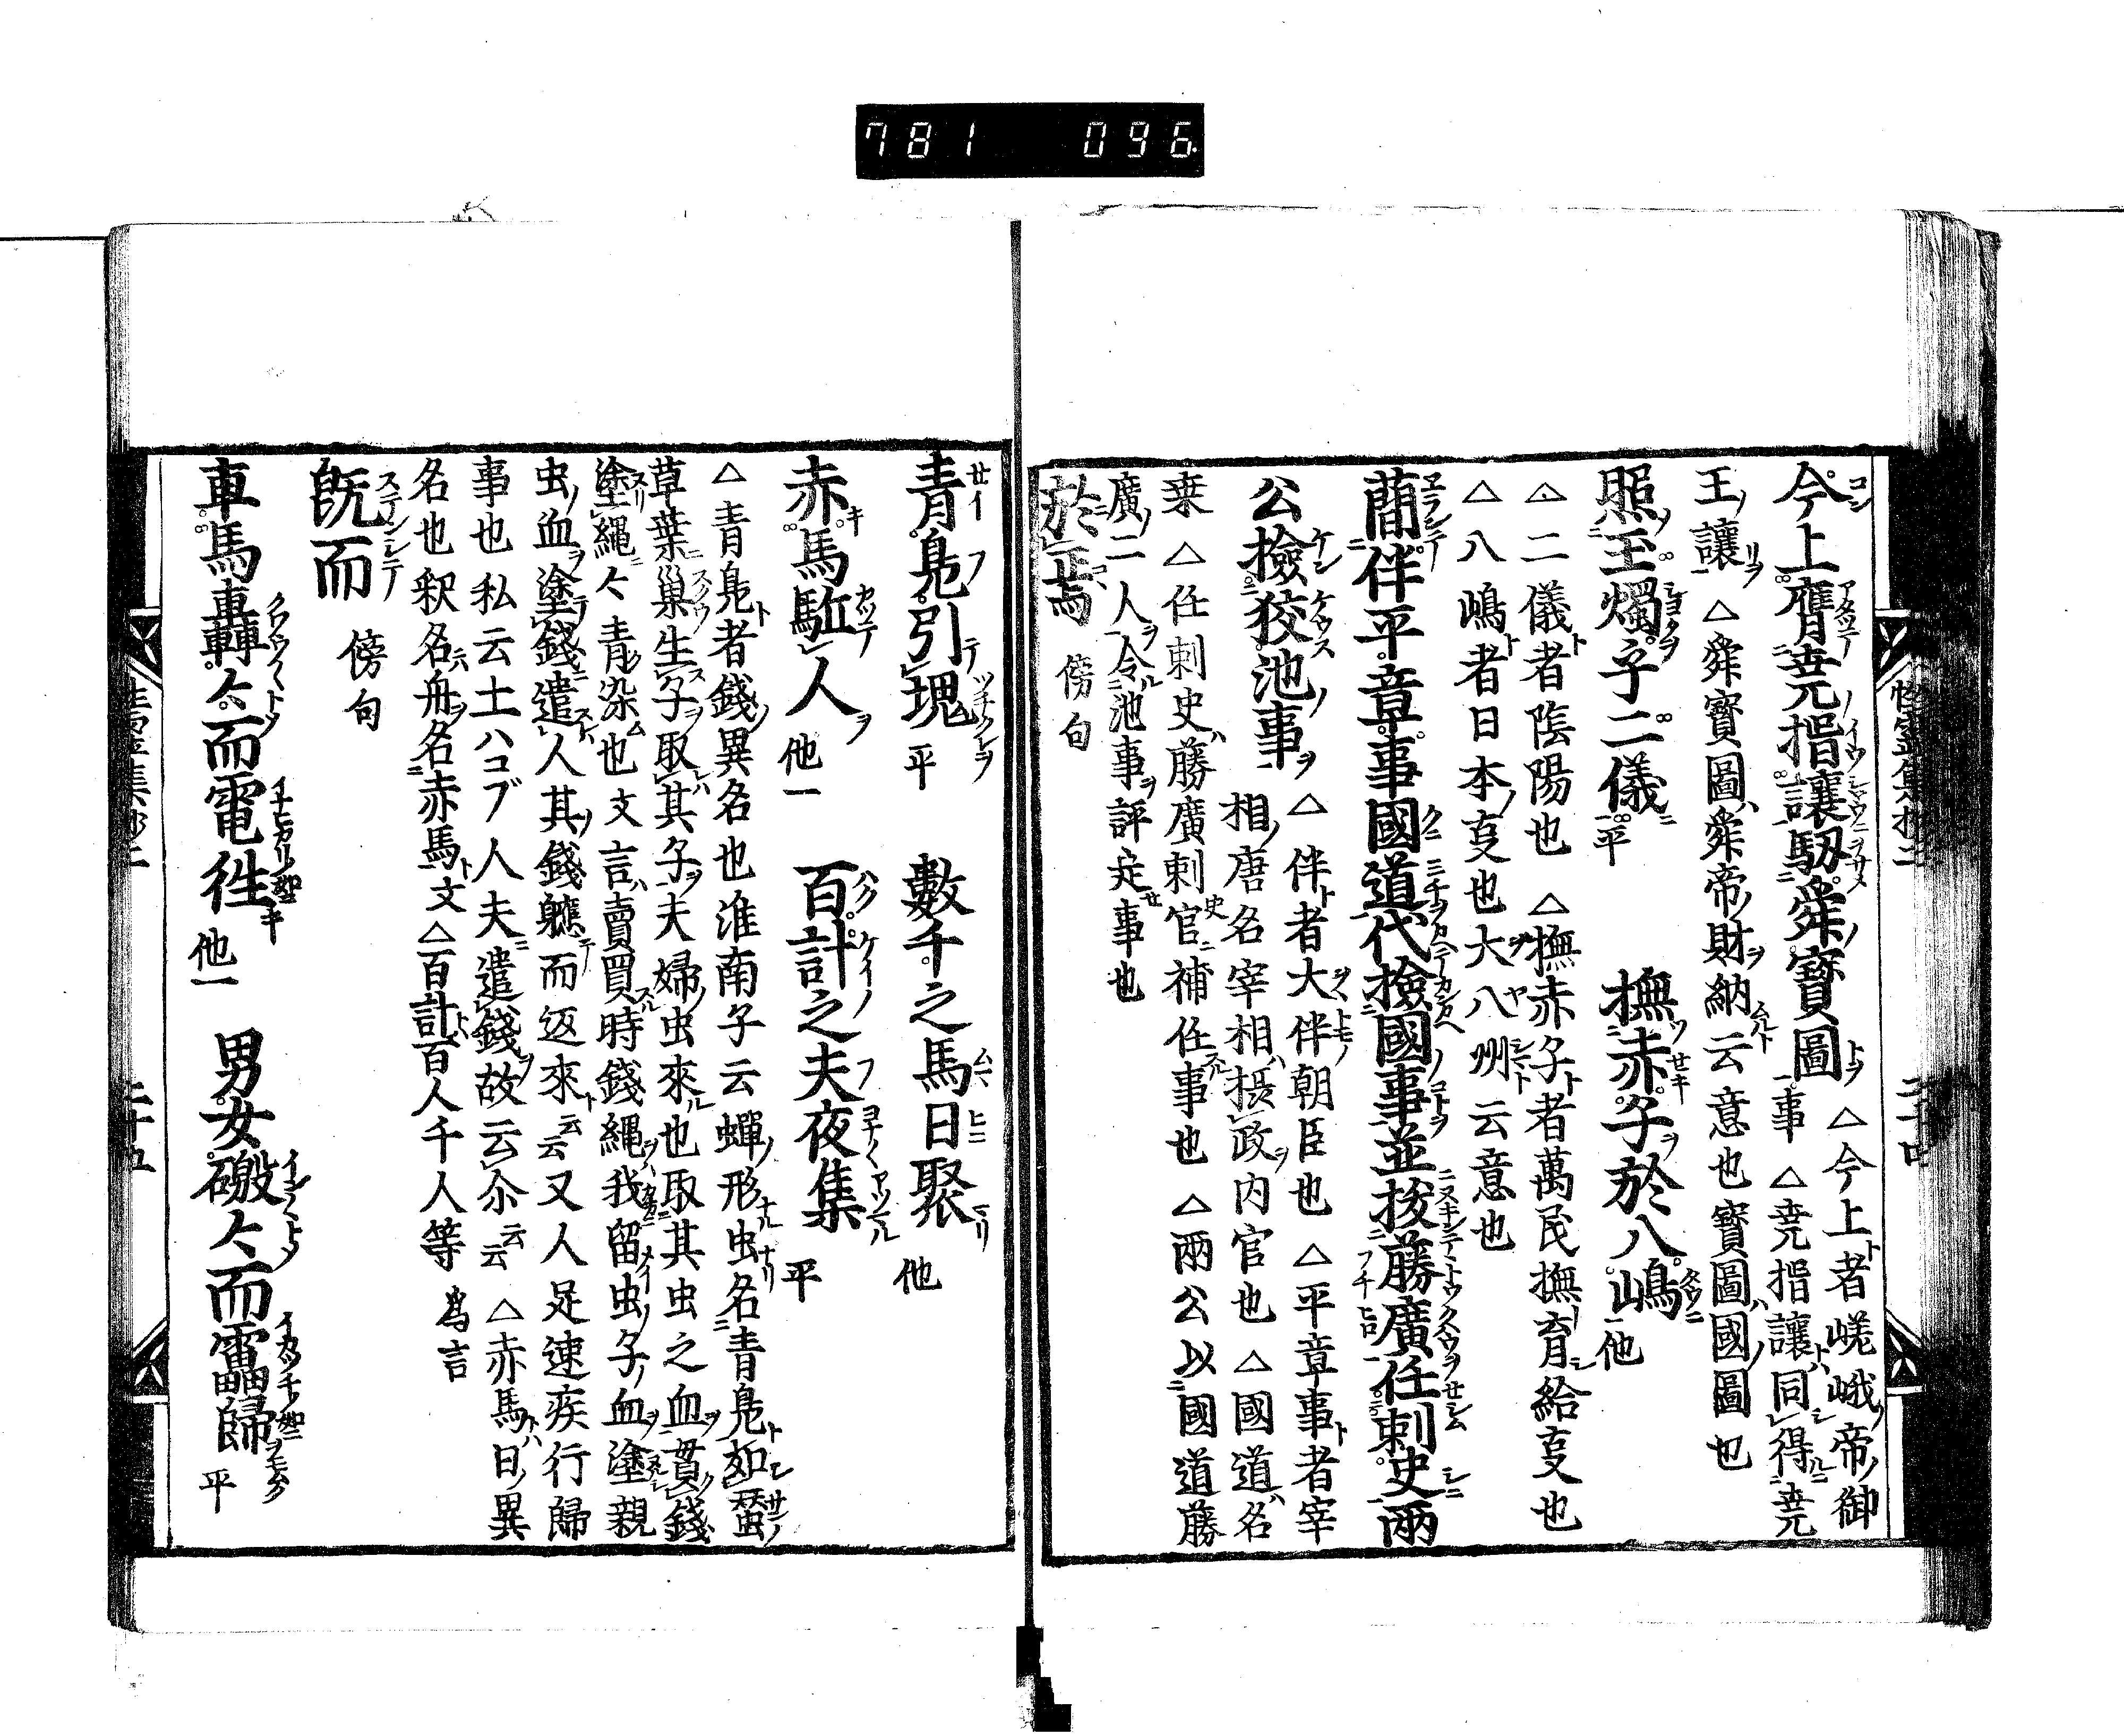 781 096
今上膺堯揩讓馭舜寶圖 △今上者嵯峨帝御
事 △堯揩讓同得堯
王讓 △舜寶圖舜帝財納云意也寶圖國圖也
照玉燭子二儀平 撫赤子於八嶋他
△二儀者陰陽也 △撫赤子者萬民撫育給叓也
△八嶋者日本叓也大八州云意也
簡伴平章事國道代撿國事並拔藤廣任刺史兩
公撿狡池事 △伴者大伴朝臣也 △平章事者宰
相唐名宰相摂政内官也 △國道名
桒 △任刺史藤廣刺官補任事也 △兩公以國道藤
廣二人令池事評定事也
於焉 傍句
青鳬引塊平 數千之馬日聚他
赤馬駈人他 百計之夫夜集平
△青鳬者錢異名也淮南子云蟬形虫名青鳬如蠶
草葉巢生子取其子夫婦虫來也取其虫之血貫錢
塗繩〻青染也文言賣買時錢繩我留虫子血塗親
虫血塗錢遣人其錢軈而返來云云又人足速疾行歸
事也私云土ハコブ人夫遣錢故云尒云云 △赤馬日異
名也釈名舟名赤馬文 △百計百人千人等爲言
既而 傍句
車馬轟〻而電徃他 男女磤〻而靁歸平
二十五